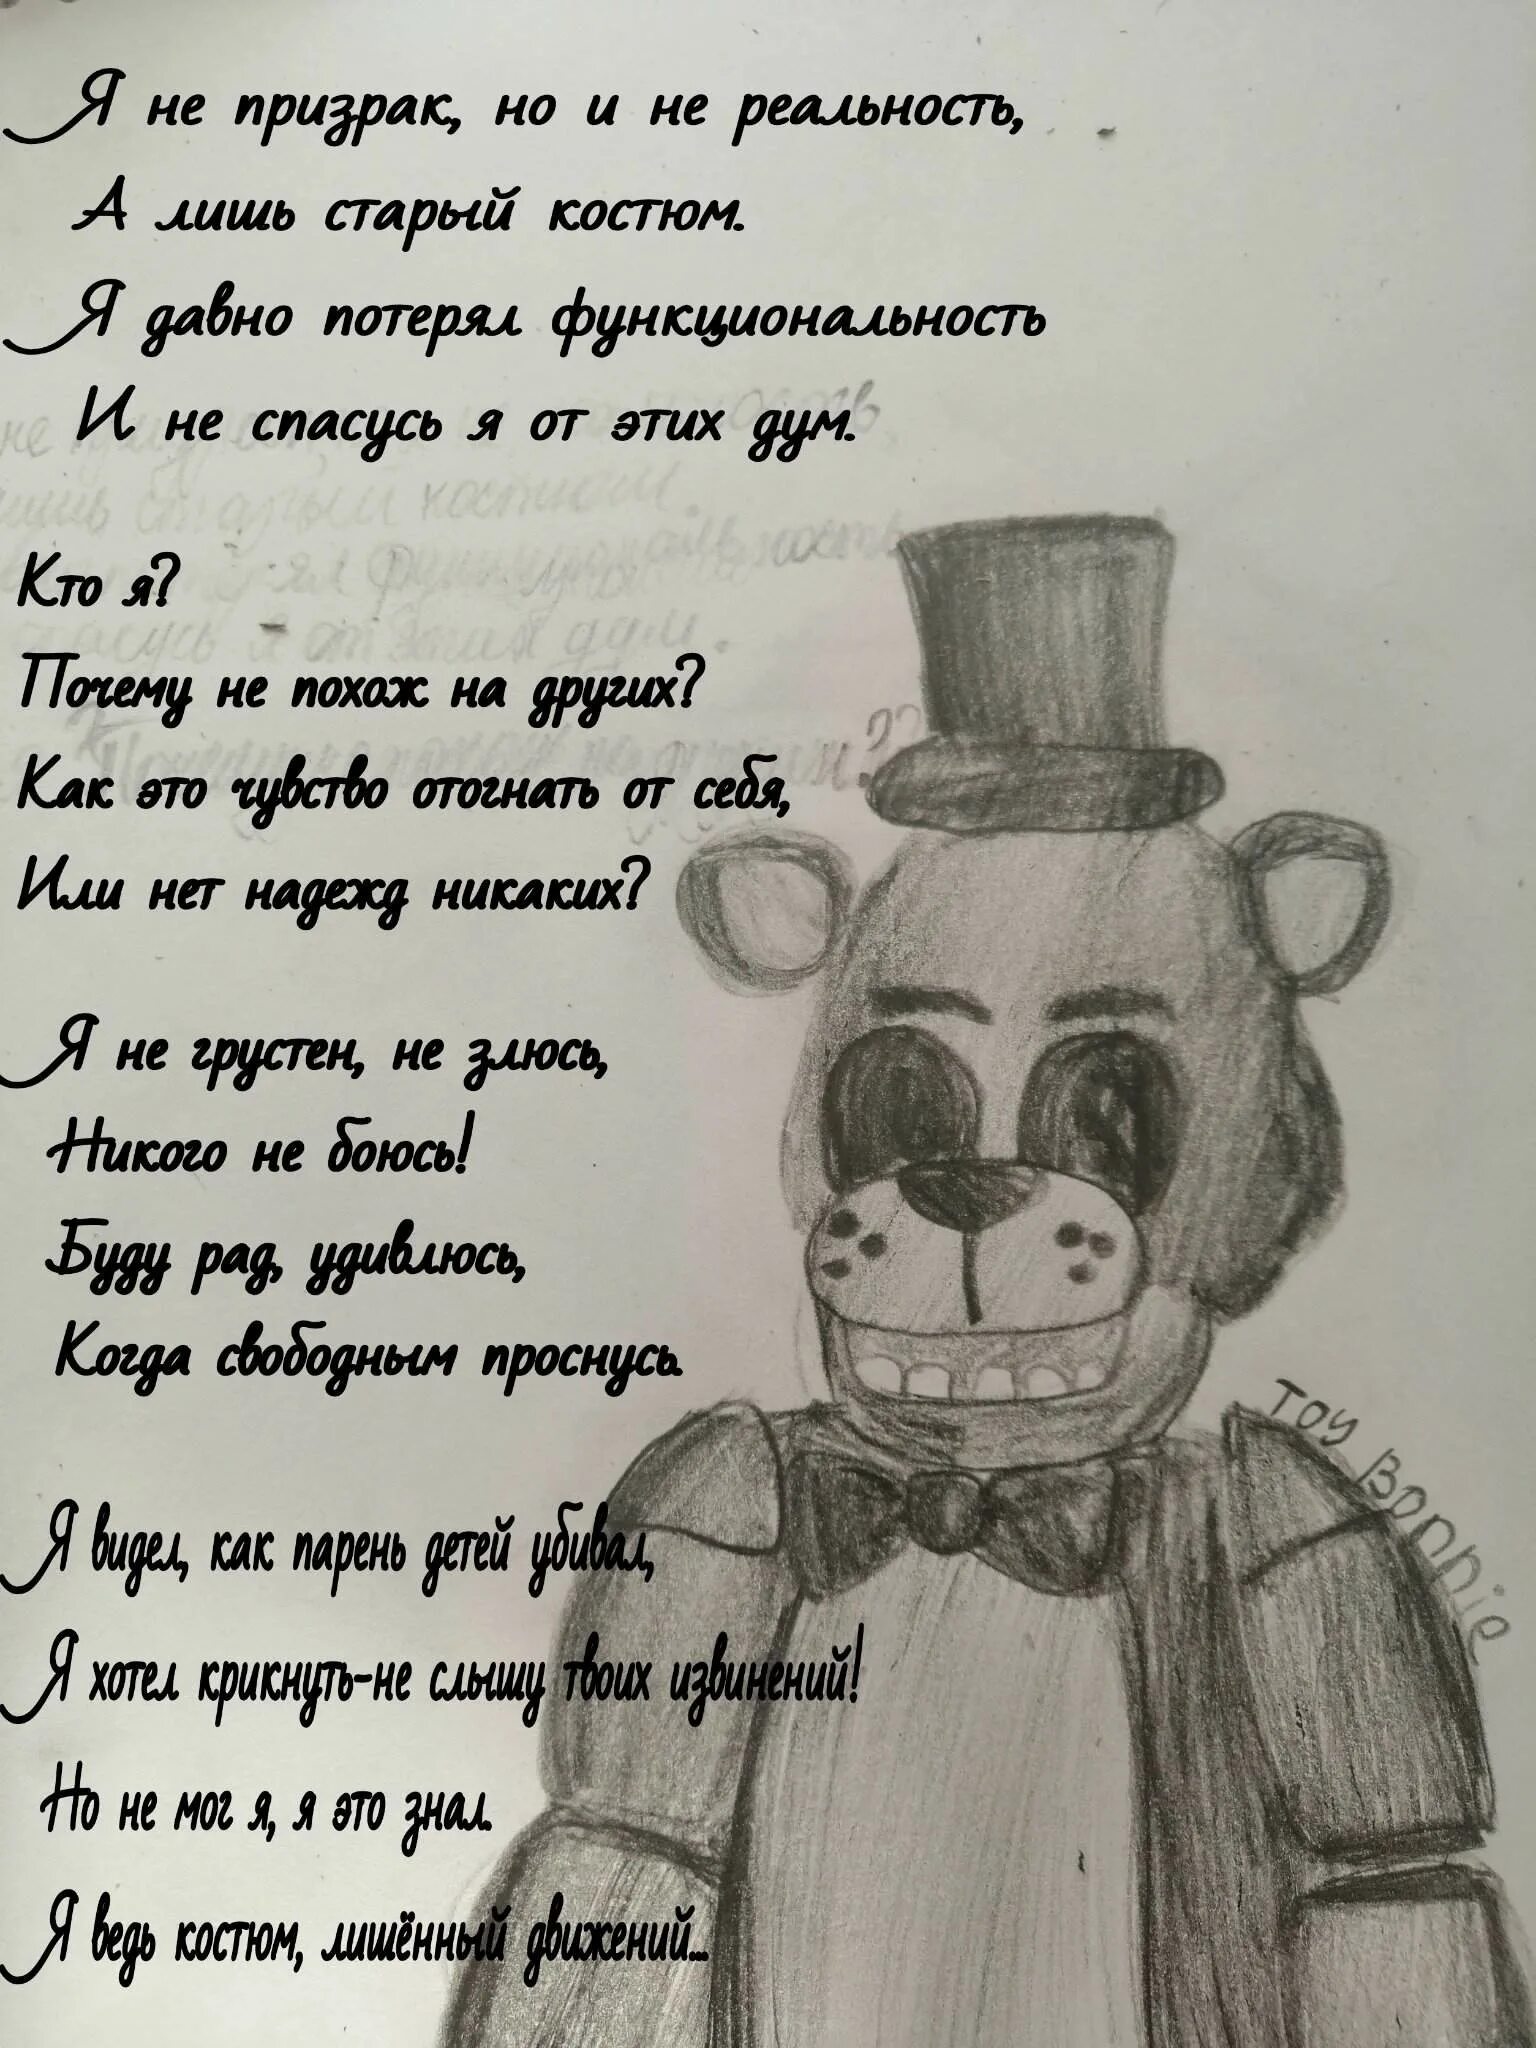 Я не призрак, но и не реальность,
А лишь старый костюм.
Я давно потерял функциональность
И не спасусь я от этих дум.
Кто я?
Почему не похож на других?
Как это чувство отогнать от себя,
Или нет надежд никаких?
Я не грустен, не злюсь,
Никого не боюсь!
Буду рад, удивлюсь,
Когда свободным проснусь.
Я видел, как парень детей убивал,
Я хотел крикнуть-не слышу твоих извинений!
Но не мог я, я это знал.
Я ведь костюм, лишённый движений...
Toy Bonnie